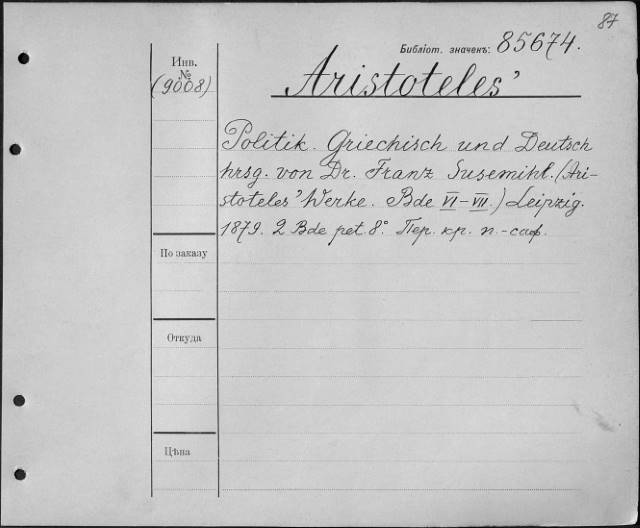 87
Библіот. значекъ: 85674.
Инв.
№
(9008)
Aristoteles'
Politik. Griechisch und Deutsch
hrsg. von Dr. Franz Susemihl. (Ari-
stoteles' Werke. Bde VI–VII.) Leipzig.
1879. 2 Bde pet. 8°. Пер. кр. п.-саф.
По заказу
Откуда
Цѣна